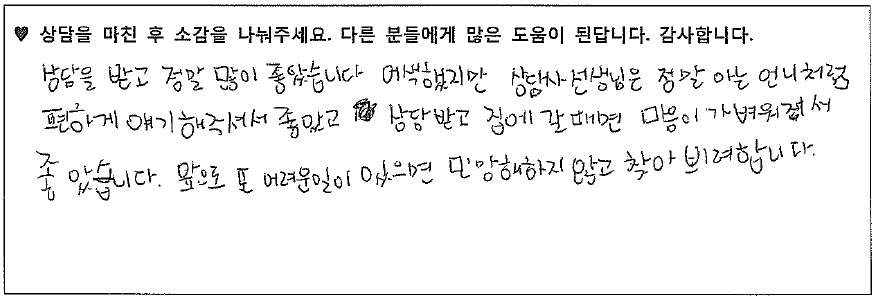 ♥ 상담을 마친 후 소감을 나눠주세요. 다른 분들에게 많은 도움이 된답니다. 감사합니다.
상담을 받고 정말 많이 좋았습니다 어색했지만 상담사선생님은 정말 아는 언니처럼
편하게 얘기해주셔서 좋았고 상담받고 집에 갈때면 마음이 가벼워져서
좋았습니다. 앞으로 또 어려운일이 있으면 민망해하지 않고 찾아 뵈려합니다.